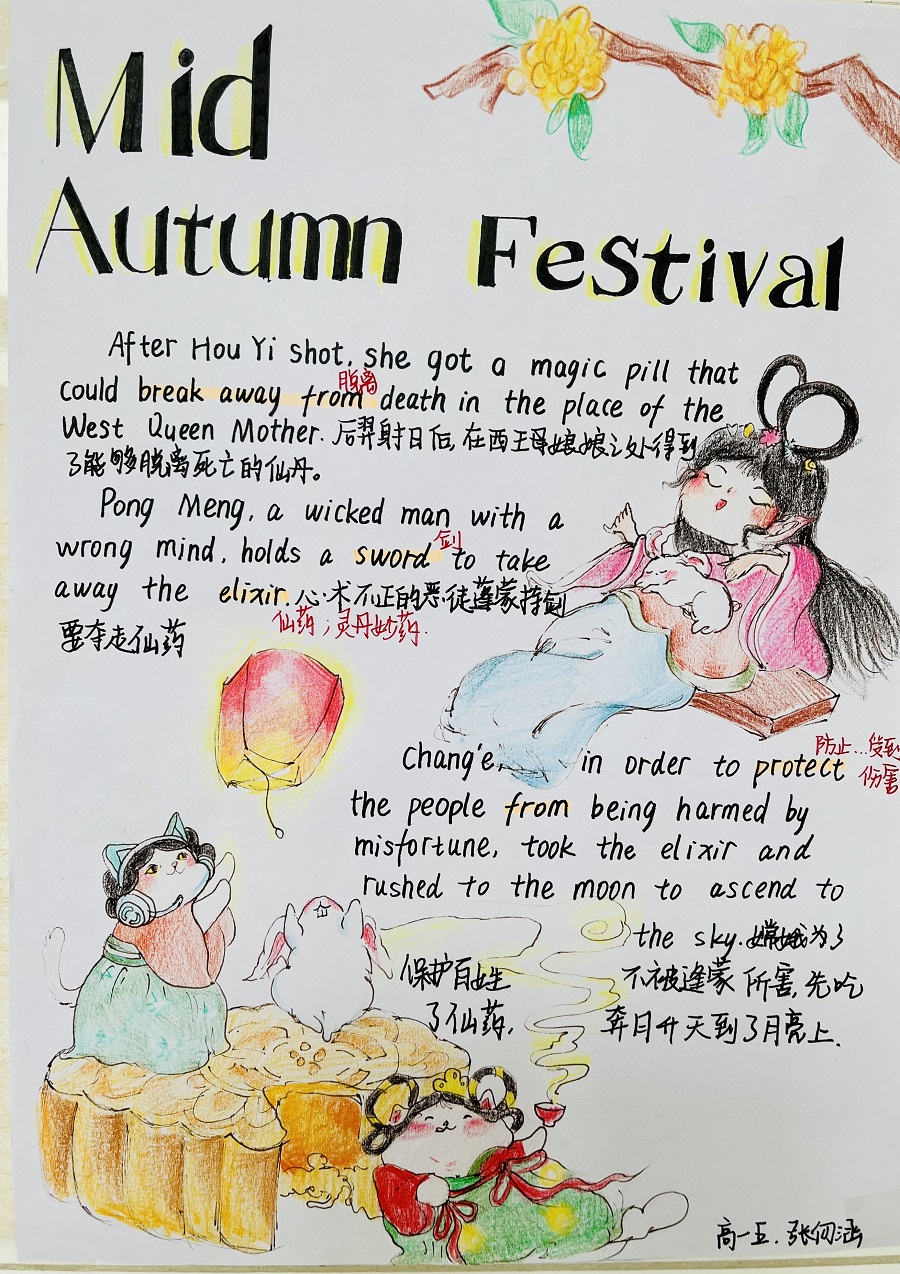 Mid
Autumn Festival
After Hou Yi shot, she got a magic pill that
脱离
could break away from death in the place of the
West Queen Mother. 后羿射日后, 在西王母娘娘之处得到
了能够脱离死亡的仙丹。
Pong Meng, a wicked man with a
剑
wrong mind, holds a sword to take
away the elixir. 心术不正的恶徒蓬蒙持剑
仙药；灵丹妙药.
要夺走仙药
防止…受到
Chang'e, in order to protect
伤害
the people from being harmed by
misfortune, took the elixir and
rushed to the moon to ascend to
the sky. 嫦娥为了
保护百姓 不被逢蒙所害, 先吃
了仙药, 奔月升天到了月亮上.
高一五. 张